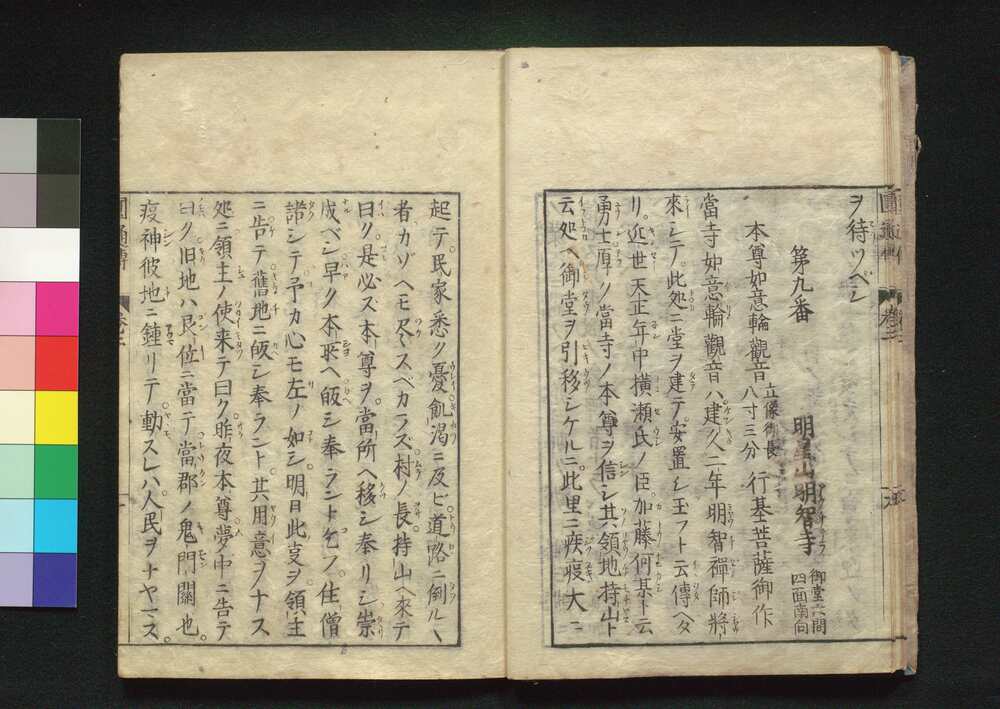 ヲ待ツベシ
第九番 明星山明智寺 御堂六間四面南向
本尊如意輪觀音 立像御長八寸三分 行基菩薩御作
當寺如意輪觀音ハ建久二年明智禪師將
來シテ此処ニ堂ヲ建テ安置シ玉フト云傳ヘタ
リ。近世天正年中横瀬氏ノ臣加藤何某ト云
勇士厚ク當寺ノ本尊ヲ信シ其領地持山ト
云処ヘ御堂ヲ引移シケルニ此里ニ疾疫大ニ
起テ民家悉ク憂飢渇ニ及ビ道路ニ倒ルヽ
者カゾヘモ尽スベカラズ村ノ長持山ヘ來テ
曰ク是必ス本尊ヲ當所ヘ移シ奉リシ崇
成ベシ早ク本所ヘ皈シ奉ラント乞フ。住僧
諾シテ予カ心モ左ノ如シ明日此叓ヲ領主
ニ告テ舊地ニ皈シ奉ラント其用意ヲナス
処ニ領主ノ使来テ曰ク昨夜本尊夢中ニ告テ
曰ク旧地ハ艮位ニ當テ當郡ノ鬼門關也。
疫神彼地ニ鍾リテ動スレハ人民ヲナヤマス。
圓通傳 巻三